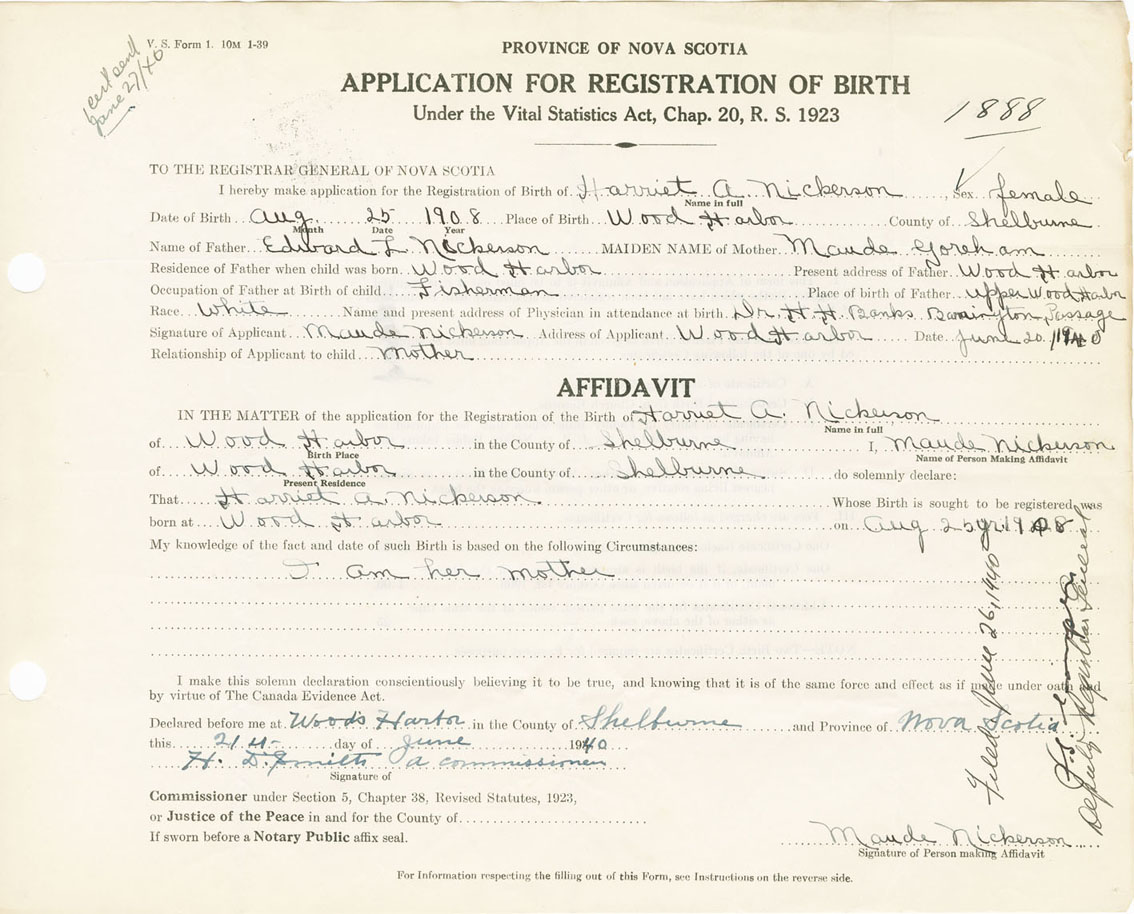 V. S. Form 1. 10M 1-39
cert sent
June 27/40
PROVINCE OF NOVA SCOTIA
APPLICATION FOR REGISTRATION OF BIRTH
Under the Vital Statistics Act, Chap. 20, R. S. 1923
1888
TO THE REGISTRAR GENERAL OF NOVA SCOTIA
I hereby make application for the Registration of Birth of Harriet A. Nickerson, Sex female
Name in full
Date of Birth Aug 25 1908 Place of Birth Wood Harbor County of Shelburne
Month Date Year
Name of Father Edward L Nickerson MAIDEN NAME of Mother Maude Goreham
Residence of Father when child was born Wood Harbor Present address of Father Wood Harbor
Occupation of Father at Birth of child Fisherman Place of birth of Father upper Wood Harbor
Race White Name and present address of Physician in attendance at birth Dr. H. H. Banks Barrington Passage
Signature of Applicant Maude Nickerson Address of Applicant Wood Harbor Date June 20, 1940
Relationship of Applicant to child Mother
AFFIDAVIT
IN THE MATTER of the application for the Registration of the Birth of Harriet A. Nickerson
Name in full
of Wood Harbor in the County of Shelburne I, Maude Nickerson
Birth Place Name of Person Making Affidavit
of Wood Harbor in the County of Shelburne do solemnly declare:
Present Residence
That Harriet A. Nickerson Whose Birth is sought to be registered was
born at Wood Harbor on Aug 25 yr. 1908
My knowledge of the fact and date of such Birth is based on the following Circumstances:
I am her mother
I make this solemn declaration conscientiously believing it to be true, and knowing that it is of the same force and effect as if made under oath and
by virtue of The Canada Evidence Act.
Declared before me at Woods Harbor in the County of Shelburne and Province of Nova Scotia
this 21st day of June 1940
H. D. Smith a commissioner
Signature of
Commissioner under Section 5, Chapter 38, Revised Statutes, 1923,
or Justice of the Peace in and for the County of
If sworn before a Notary Public affix seal.
Maude Nickerson
Signature of Person making Affidavit
For Information respecting the filling out of this Form, see Instructions on the reverse side.
Filed June 26, 1940
Deputy Registrar General